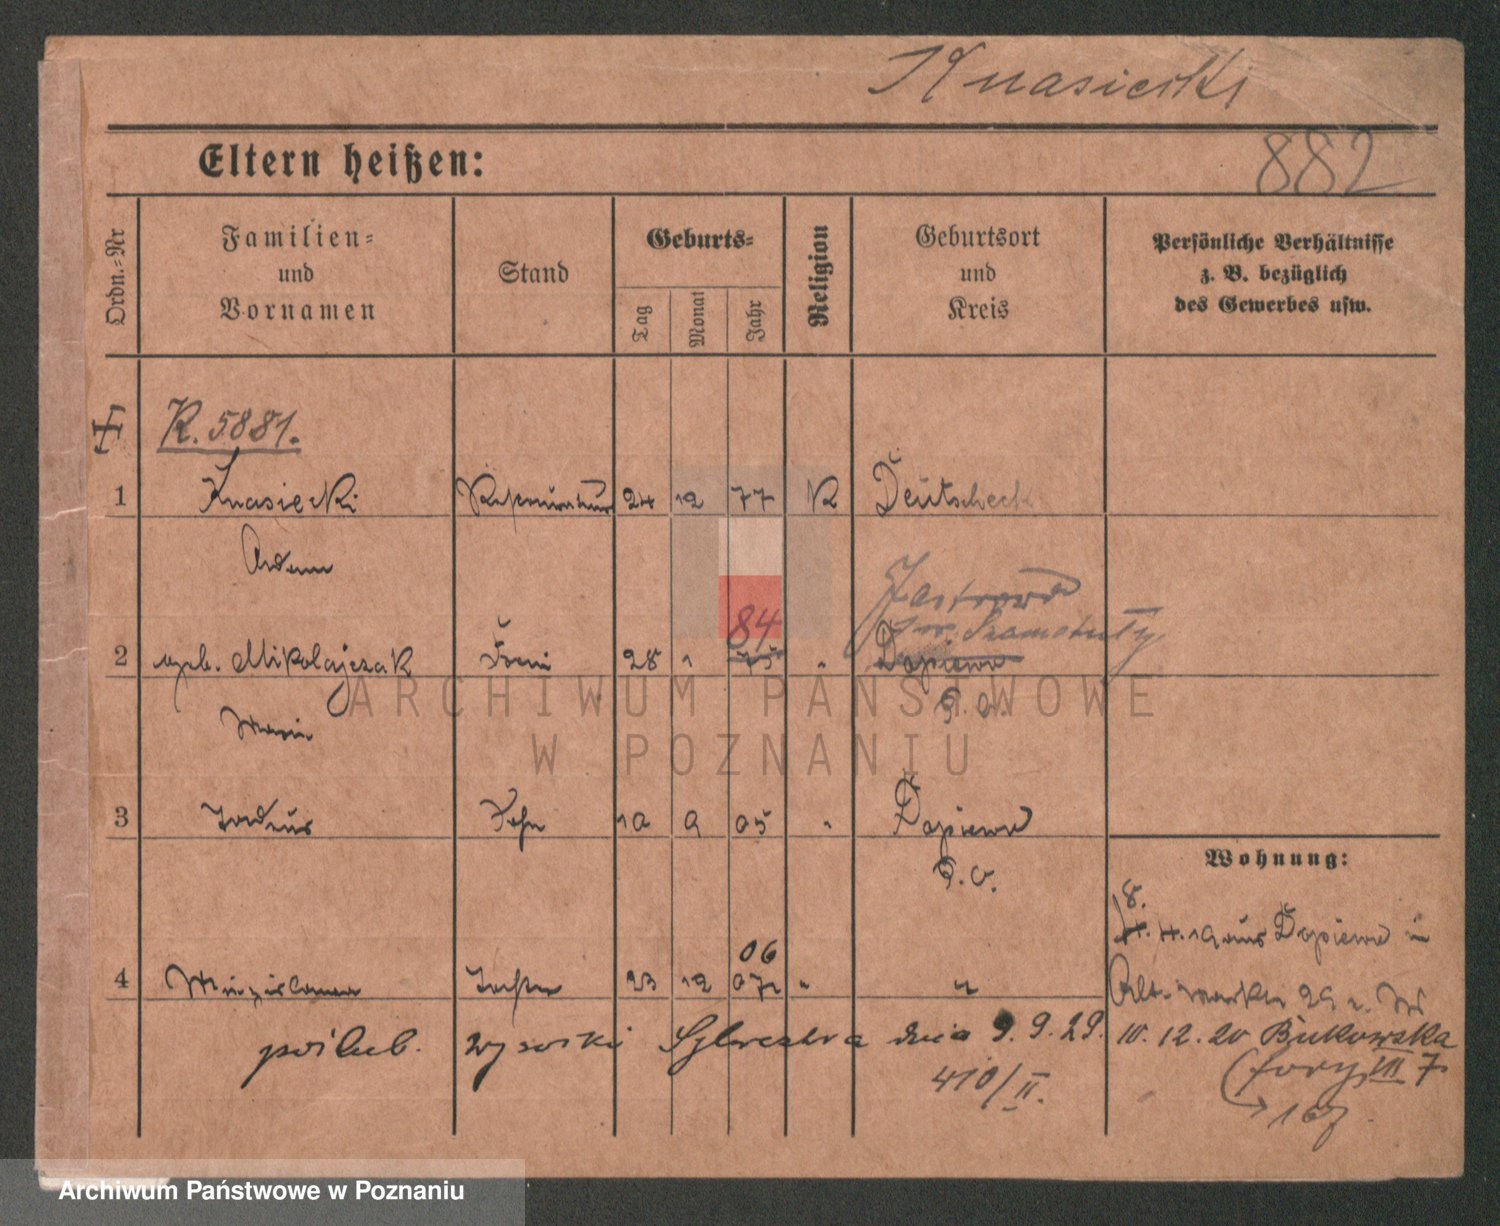 Knasiecki
882
Eltern heißen:
Ordn.=Nr
Familien=
und
Vornamen
Stand
Geburts=
Tag
Monat
Jahr
Religion
Geburtsort
und
Kreis
Persönliche Verhältnisse
z. B. bezüglich
des Gewerbes usw.
R. 5881.
1 Knasiecki 24 12 77 K Deutscheck
Adam
Jastrowo
84
pow. Szamotuły
2 geb. Mikolajczak Frau 28 1 75 " Dopiewo
P. O.
Maria
3 Sohn 10 9 05 " Dopiewo
P. O.
Wohnung:
8.
4. 19 aus Dopiewo in
06
4 Tochter 23 12 07 " "
Alt-
poślub. Wysocki Sylwestra dnia 9.9.29. 10.12.20 Bukowska
410/II.
VII 7
→ 167
ARCHIWUM PAŃSTWOWE
W POZNANIU
Archiwum Państwowe w Poznaniu